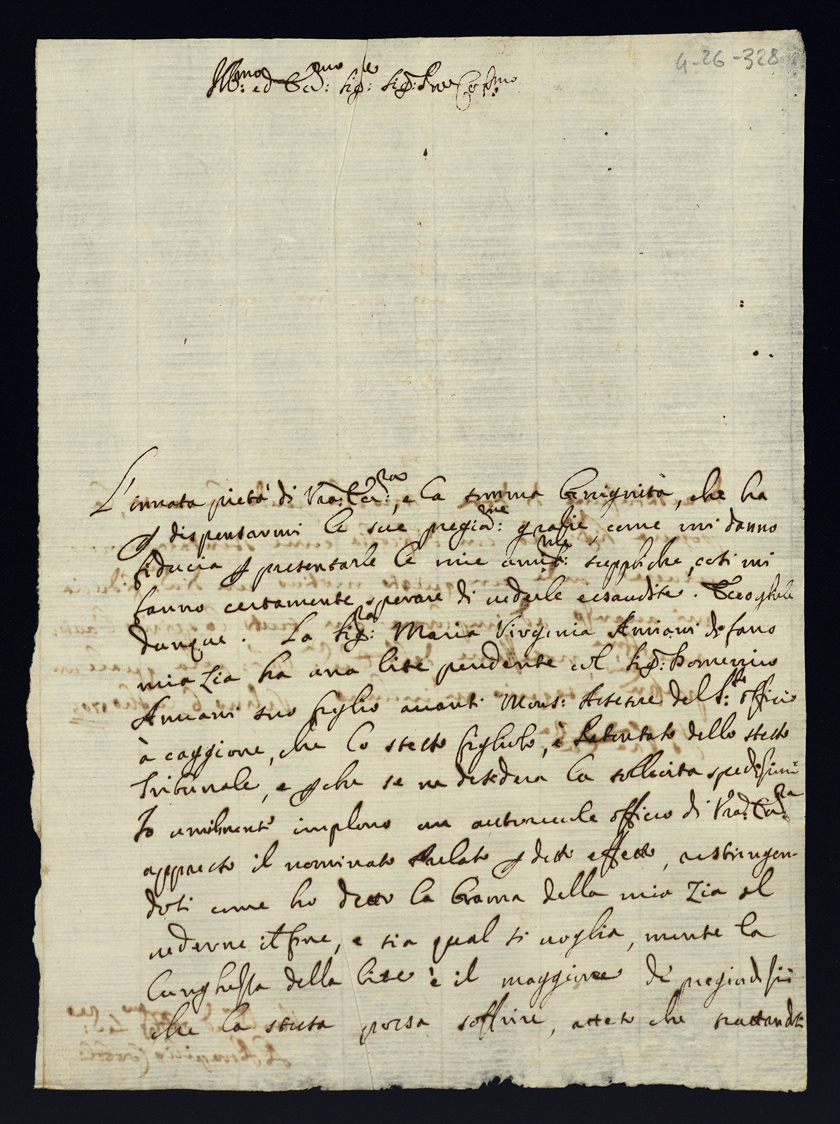 4-26-328
Ill:mo ed Ecc:mo Sig:re Sig:r Pron Col:mo
L'innata pietà di Vra: Ecc:za, e la somma benignità, che ha
p dispensarmi le sue pregia:me grazie, come mi danno
fiducia p presentarle le mie umil:me suppliche, così mi
fanno certamente sperare di vederle esaudite. Eccogliele
dunque. La Sig:ra Maria Virginia Amiani di fano
mia Zia ha una lite pendente col Sig:r Domenico
Amiani suo figlio avanti Mons: Assessre del S:to officio
à caggione, che lo stesso figliolo, è Patentato dello stesso
Tribunale, e p che se ne desidera la sollecita spedizione
Io umilmente imploro un autorevole officio di Vra: Ecc:za
appresso il nominato Prelato p detto effetto, restringen-
dosi come ho detto la brama della mia Zia al
vederne il fine, e sia qual si voglia, mentre la
lunghezza della lite è il maggiore de pregiudizii
che la stessa possa soffrire, atteso che trattandosi